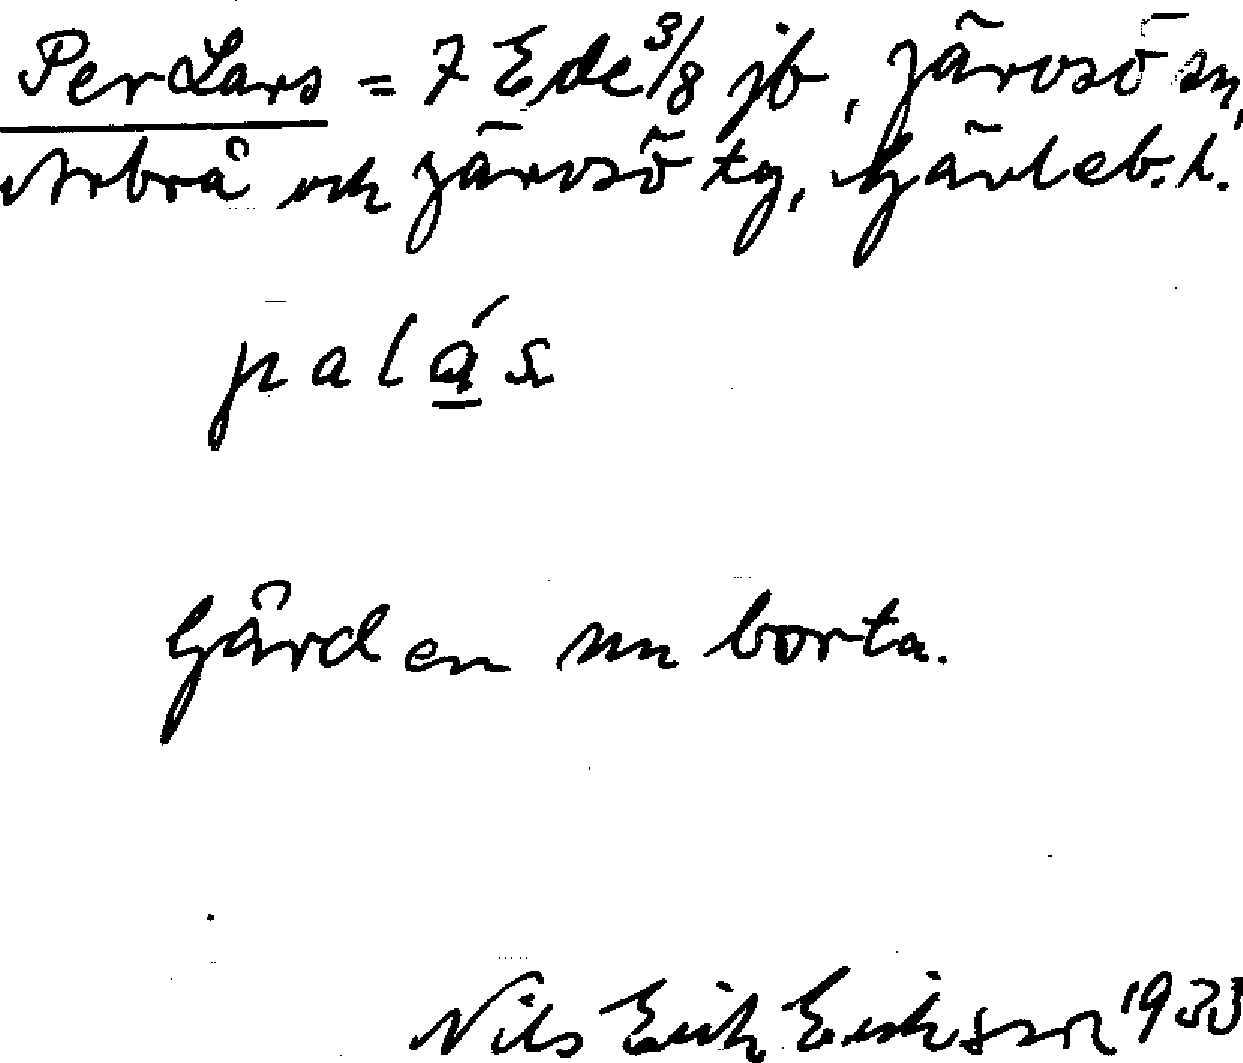 Per Lars = 7 Ede 3/8 jb, Järvsö sn,
Arbrå och Järvsö tg, Gävleb. l.
palás
Gården nu borta.
Nils Erik Eriksson 1933